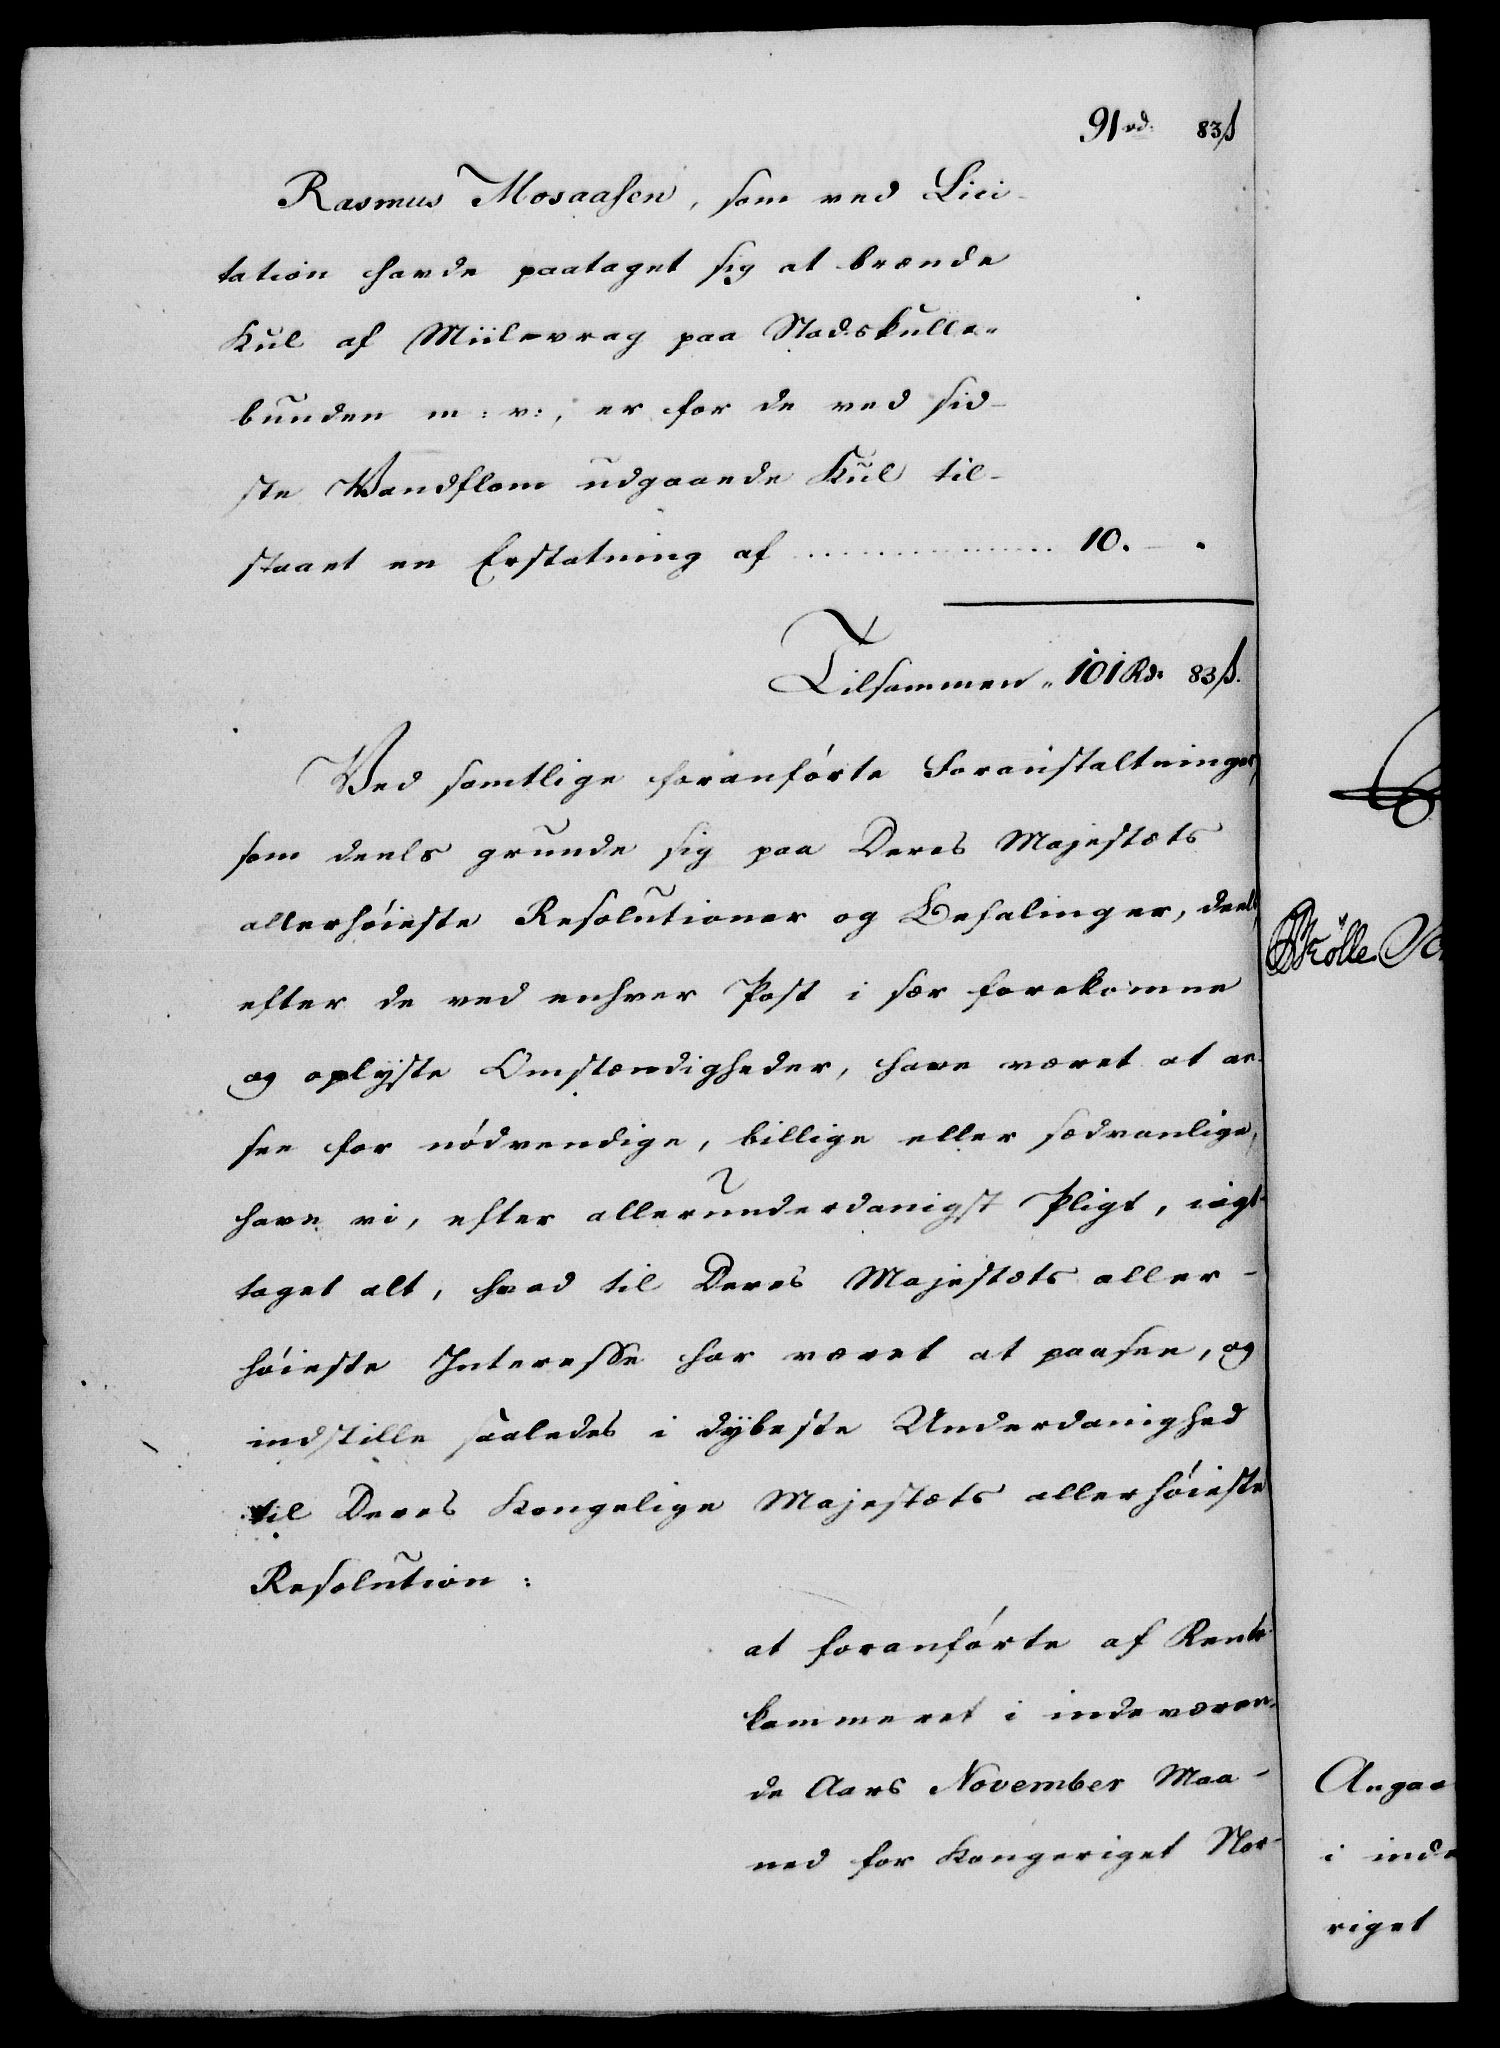 91 rd. 83 ß
Rasmus Mosaasen, som ved Lici-
tation havde paataget sig at brænde
Kul af Miilevrag paa Stadskulle-
bunden m: v:, er for de ved sid-
ste Vandflom udgaaede Kul til-
staaet en Erstatning af ................ 10. — .
Tilsammen „ 101 Rd. 83 ß.
Ved samtlige foranførte Foranstaltninger,
som deels grunde sig paa Deres Majestæts
allerhøieste Resolutioner og Befalinger, deels
efter de ved enhver Post i sær forekomne
og oplyste Omstændigheder, have været at an-
see for nødvendige, billige eller sædvanlige,
have vi, efter allerunderdanigst Pligt, iagt-
taget alt, hvad til Deres Majestæts aller-
høieste Interesse har været at paasee, og
indstille saaledes i dybeste Underdanighed
til Deres Kongelige Majestæts allerhøieste
Resolution:
at foranførte af Rente-
kammeret i indeværen-
de Aars November Maa-
ned for Kongeriget Nor-
Angaa
i inde
riget